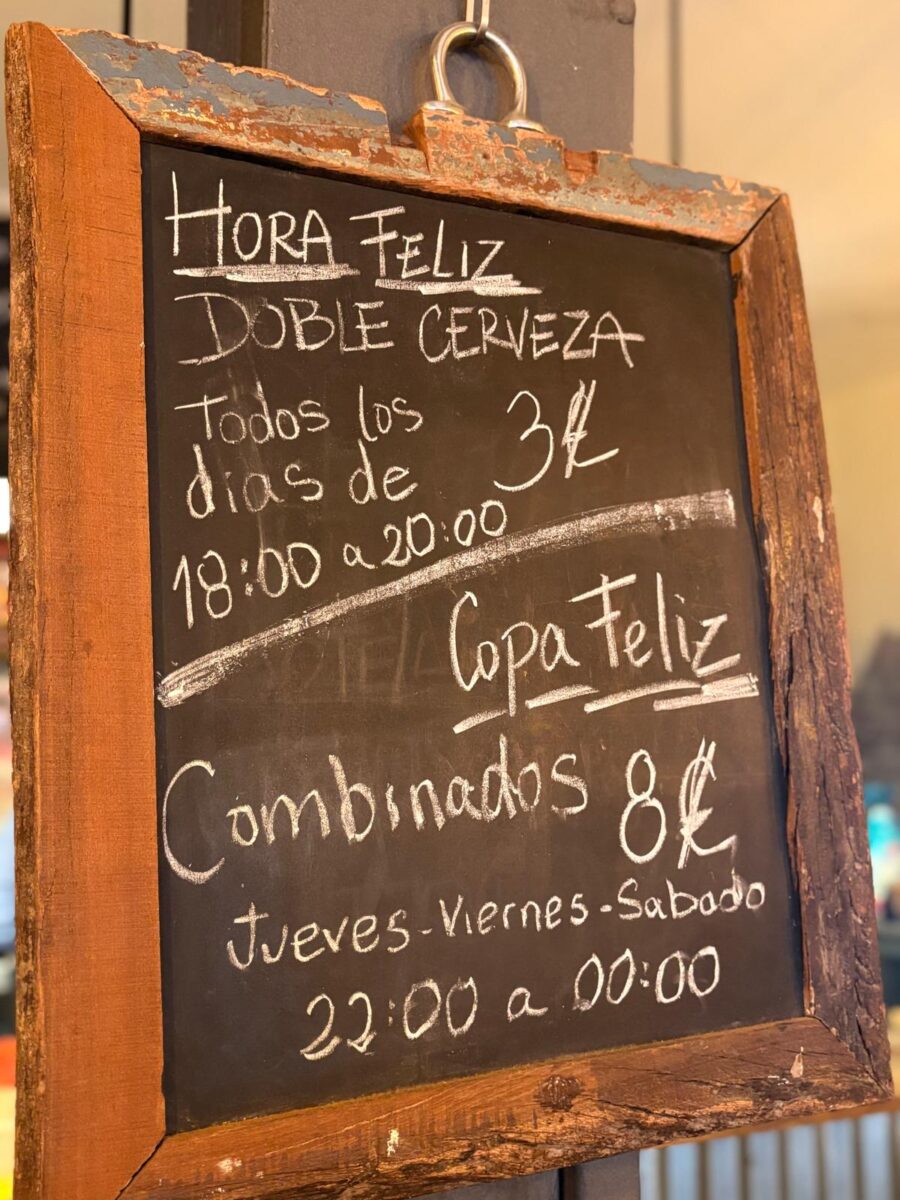 HORA FELIZ
DOBLE CERVEZA
Todos los
dias de 3€
18:00 a 20:00
Copa Feliz
Combinados 8€
Jueves-Viernes-Sabado
22:00 a 00:00